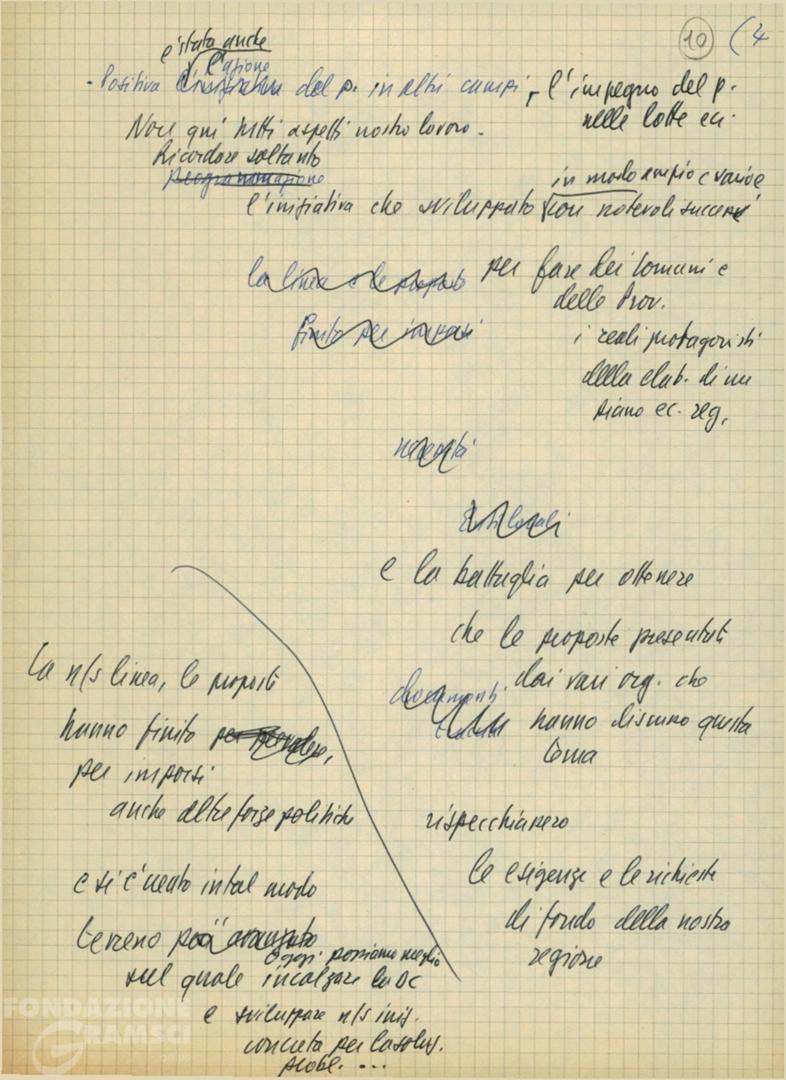 10 (4
è stata anche
l'azione
- Positiva l'iniziativa del p. in altri campi, l'impegno del p.
nelle lotte ec.
Non qui tutti aspetti nostro lavoro -
Ricordare soltanto
programmazione
in modo ampio e vario e
l'iniziativa che sviluppato con notevoli successi
la linea e le proposte per fare dei Comuni e
delle Prov.
finito per imporsi i reali protagonisti
della elab. di un
piano ec. reg.
necessità
Enti locali
e la battaglia per ottenere
che le proposte presentate
documenti dai vari org. che
hanno discusso questo
tema
rispecchiassero
le esigenze e le richieste
di fondo della nostra
regione
La n/s linea, le proposte
hanno finito per prevalere,
per imporsi
anche altre forze politiche
e si è creato in tal modo
terreno più avanzato
oggi possiamo meglio
sul quale incalzare la DC
e sviluppare n/s iniz.
concreta per la soluz.
probl. ...
FONDAZIONE
GRAMSCI